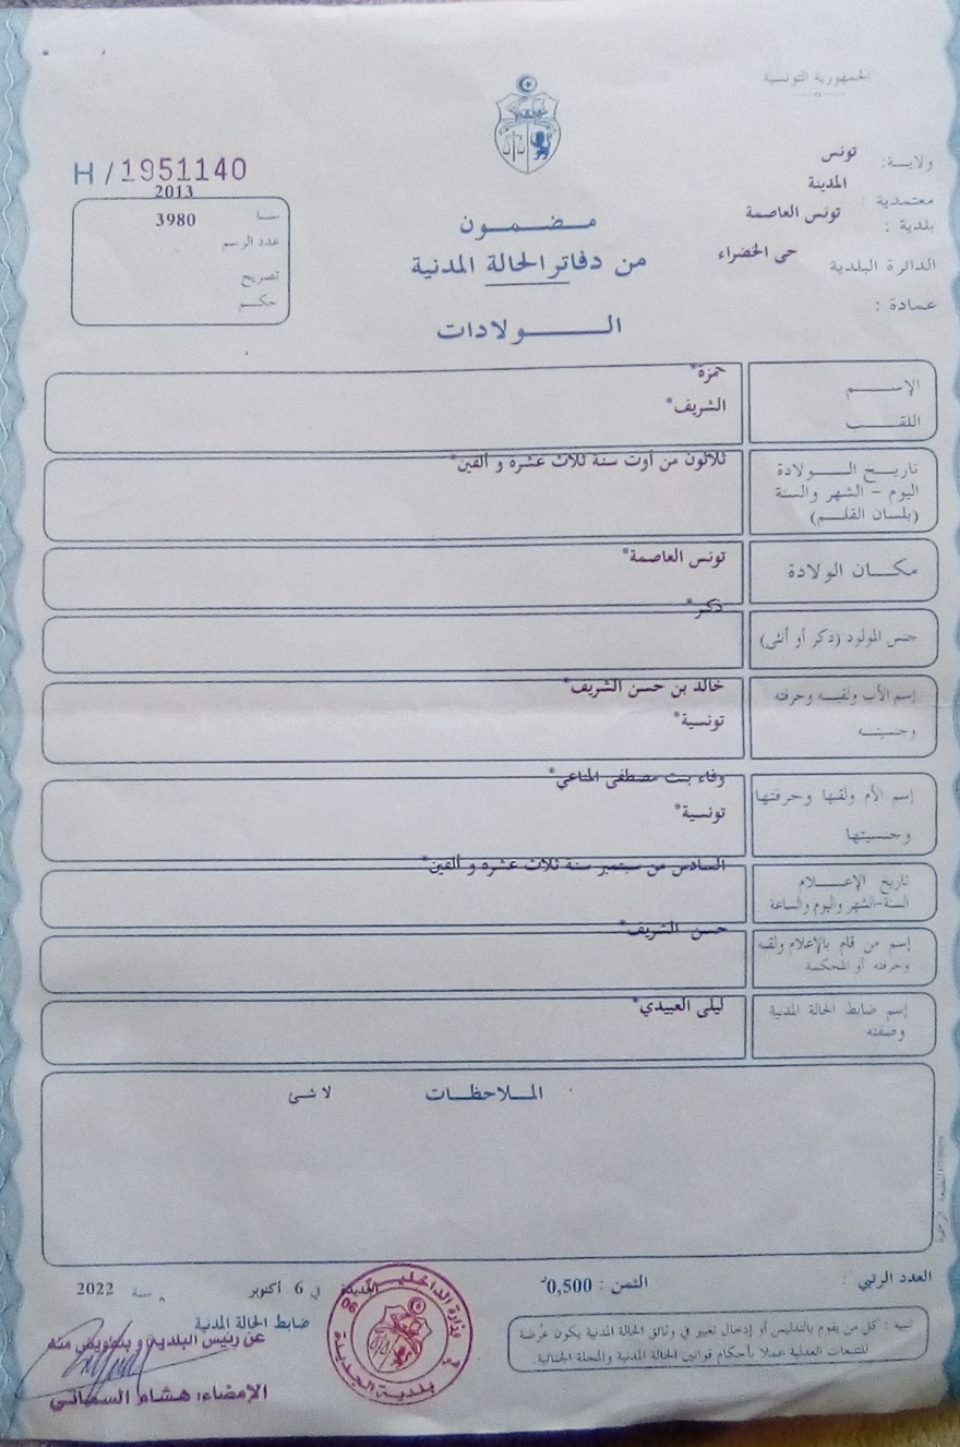 الجمهورية التونسية
ولاية: تونس
معتمدية: المدينة
بلدية: تونس العاصمة
الدائرة البلدية: حي الخضراء
عمادة:
H / 1951140
2013
سنة
3980
عدد الرسم
تصريح
حكم
مضمون
من دفاتر الحالة المدنية
الولادات
الإسم حمزة*
اللقب الشريف*
تاريخ الولادة
اليوم - الشهر والسنة
(بلسان القلم)
ثلاثون من أوت سنة ثلاث عشرة و ألفين*
مكان الولادة تونس العاصمة*
جنس المولود (ذكر أو أنثى) ذكر*
إسم الأب ولقبه وحرفته خالد بن حسن الشريف*
وجنسيته تونسية*
إسم الأم ولقبها وحرفتها وفاء بنت مصطفى المناعي*
وجنسيتها تونسية*
تاريخ الإعلام
السنة-الشهر واليوم والساعة
السادس من سبتمبر سنة ثلاث عشرة و ألفين*
إسم من قام بالإعلام ولقبه
وحرفته أو المحكمة
حسن الشريف*
إسم ضابط الحالة المدنية
وصفته
ليلى العبيدي*
الملاحظات لا شى
العدد الرتبي :
الثمن : 0,500
الجديدة في 6 أكتوبر سنة 2022
تنبيه : كل من يقوم بالتدليس أو إدخال تغيير في وثائق الحالة المدنية يكون عرضة
للتتبعات العدلية عملا بأحكام قوانين الحالة المدنية والمجلة الجنائية.
ضابط الحالة المدنية
عن رئيس البلدية و بتفويض منه
الإمضاء: هشام السماتي
وزارة الداخلية
بلدية الجديدة
06